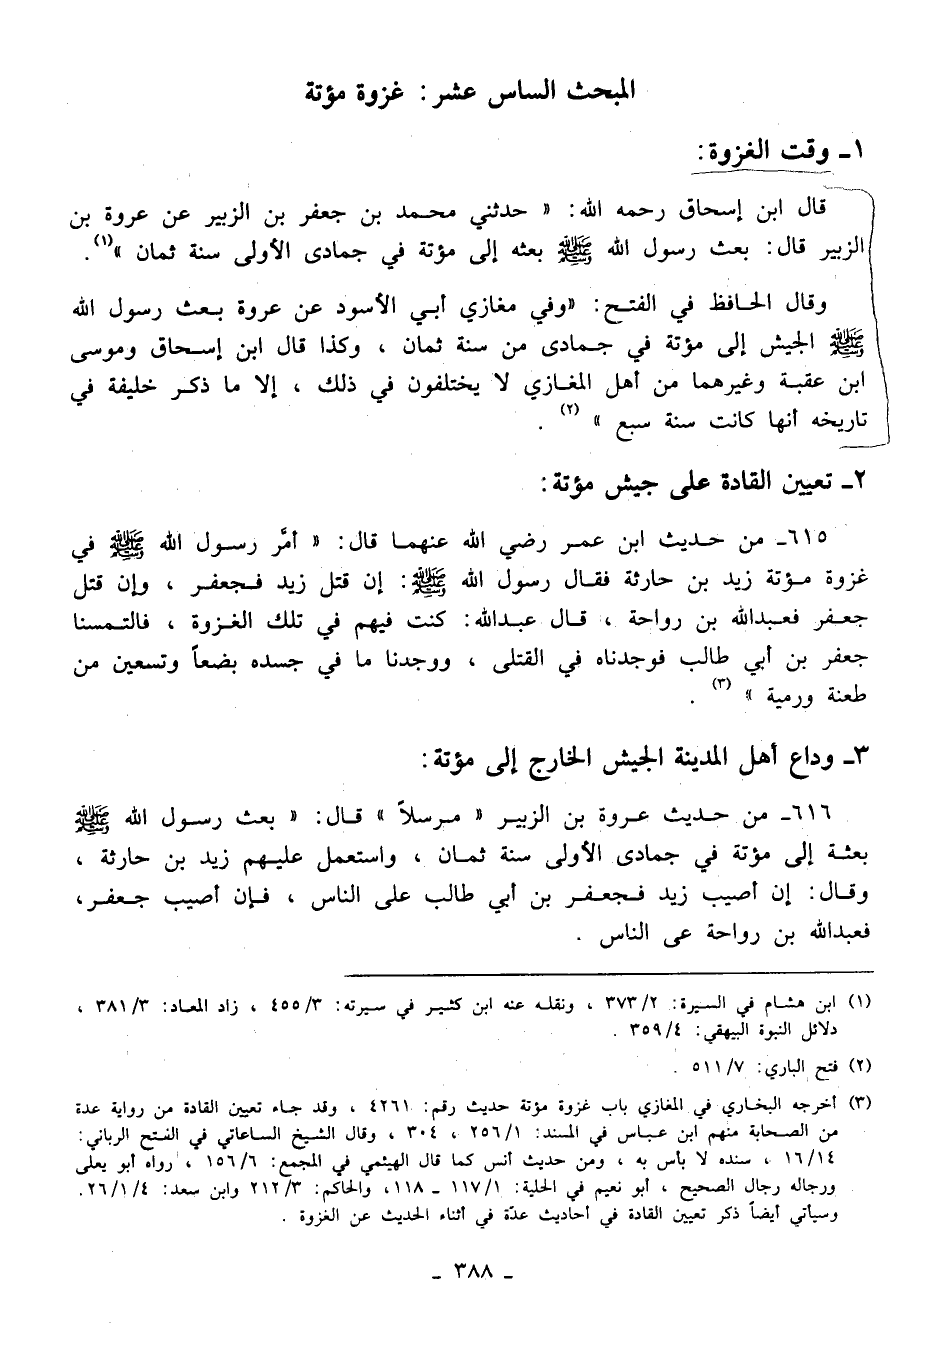 المبحث الساس عشر: غزوة مؤتة
١ـ وقت الغزوة:
قال ابن إسحاق رحمه الله: « حدثني محمد بن جعفر بن الزبير عن عروة بن
الزبير قال: بعث رسول الله ﷺ بعثه إلى مؤتة في جمادى الأولى سنة ثمان »(١).
وقال الحافظ في الفتح: «وفي مغازي أبي الأسود عن عروة بعث رسول الله
ﷺ الجيش إلى مؤتة في جمادى من سنة ثمان ، وكذا قال ابن إسحاق وموسى
ابن عقبة وغيرهما من أهل المغازي لا يختلفون في ذلك ، إلا ما ذكر خليفة في
تاريخه أنها كانت سنة سبع » (٢) .
٢ـ تعيين القادة على جيش مؤتة:
٦١٥ـ من حديث ابن عمر رضي الله عنهما قال: « أمَّر رسول الله ﷺ في
غزوة مؤتة زيد بن حارثة فقال رسول الله ﷺ: إن قتل زيد فجعفر ، وإن قتل
جعفر فعبدالله بن رواحة ، قال عبدالله: كنت فيهم في تلك الغزوة ، فالتمسنا
جعفر بن أبي طالب فوجدناه في القتلى ، ووجدنا ما في جسده بضعاً وتسعين من
طعنة ورمية » (٣) .
٣ـ وداع أهل المدينة الجيش الخارج إلى مؤتة:
٦١٦ـ من حديث عروة بن الزبير « مرسلاً » قال: « بعث رسول الله ﷺ
بعثة إلى مؤتة في جمادى الأولى سنة ثمان ، واستعمل عليهم زيد بن حارثة ،
وقال: إن أصيب زيد فجعفر بن أبي طالب على الناس ، فإن أصيب جعفر،
فعبدالله بن رواحة عى الناس .
(١) ابن هشام في السيرة: ٣٧٣/٢ ، ونقله عنه ابن كثير في سيرته: ٤٥٥/٣ ، زاد المعاد: ٣٨١/٣ ،
دلائل النبوة البيهقي: ٣٥٩/٤ .
(٢) فتح الباري: ٥١١/٧ .
(٣) أخرجه البخاري في المغازي باب غزوة مؤتة حديث رقم: ٤٢٦١ ، وقد جاء تعيين القادة من رواية عدة
من الصحابة منهم ابن عباس في المسند: ٢٥٦/١ ، ٣٠٤ ، وقال الشيخ الساعاتي في الفتح الرباني:
١٦/١٤ ، سنده لا بأس به ، ومن حديث أنس كما قال الهيثمي في المجمع: ١٥٦/٦ ، رواه أبو يعلى
ورجاله رجال الصحيح ، أبو نعيم في الحلية: ١١٧/١ ـ ١١٨، والحاكم: ٢١٢/٣ وابن سعد: ٢٦/١/٤.
وسيأتي أيضاً ذكر تعيين القادة في أحاديث عدّة في أثناء الحديث عن الغزوة .
ـ ٣٨٨ ـ